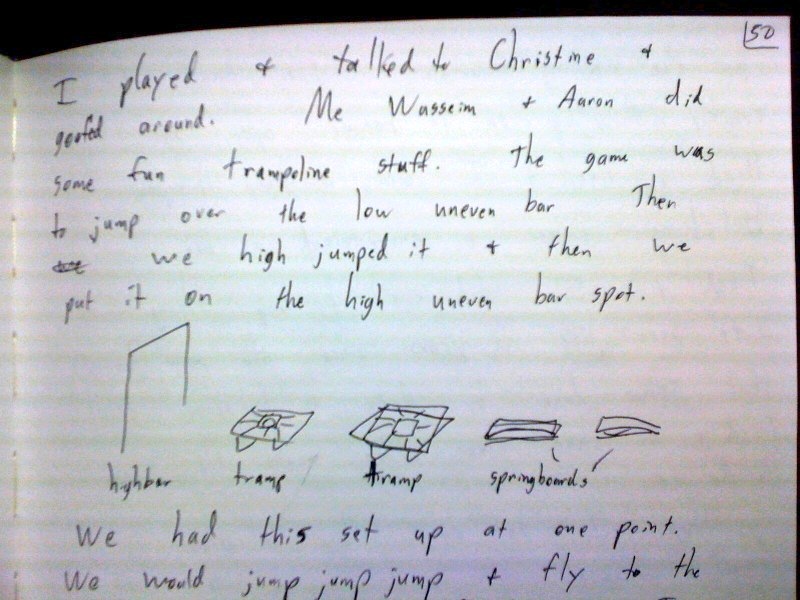 50
I played & talked to Christine &
goofed around. Me Wasseim & Aaron did
some fun trampoline stuff. The game was
to jump over the low uneven bar Then
we high jumped it & then we
put it on the high uneven bar spot.
highbar tramp tramp springboards
We had this set up at one point.
We would jump jump jump & fly to the